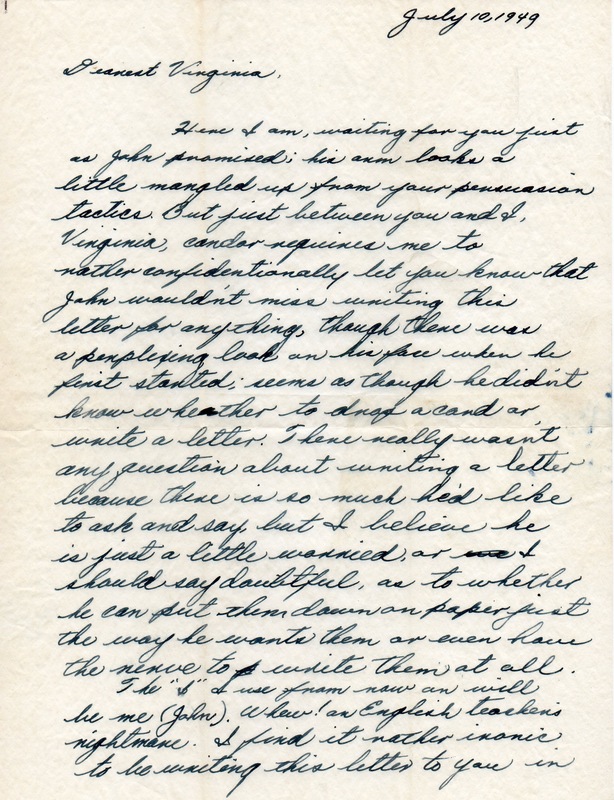 July 10, 1949
Dearest Virginia,
Here I am, waiting for you just
as John promised; his arm looks a
little mangled up from your persuasion
tactics. But just between you and I,
Virginia, candor requires me to
rather confidentionally let you know that
John wouldn't miss writing this
letter for anything, though there was
a perplexing look on his face when he
first started; seems as though he didn't
know wheather to drop a card or
write a letter. There really wasn't
any question about writing a letter
because there is so much he'd like
to ask and say but I believe he
is just a little worried, or I
should say doubtful, as to whether
he can put them down on paper just
the way he wants them or even have
the nerve to write them at all.
The "I" I use from now on will
be me (John). Whew! an English teacher's
nightmare. I find it rather ironic
to be writing this letter to you in